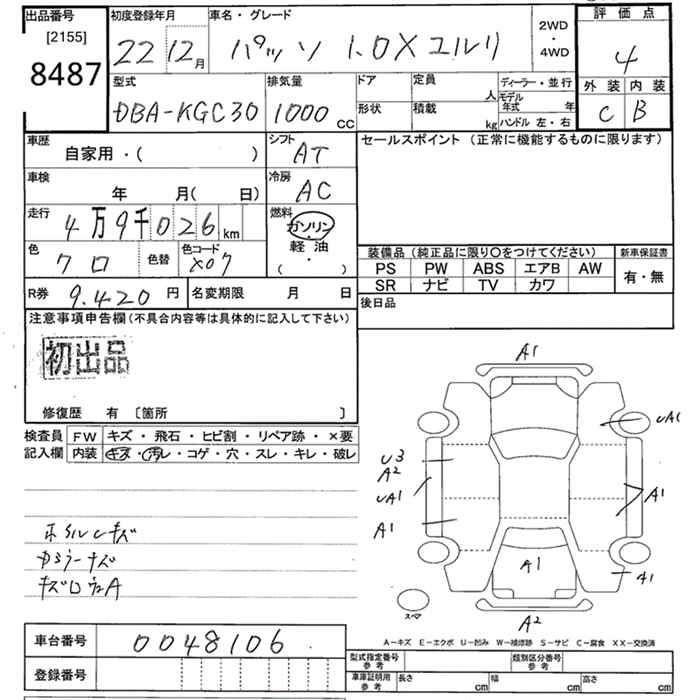 出品番号 [2155] 8487
初度登録年月 22 12月
車名・グレード パッソ 1.0X ユルリ
2WD・4WD
評価点 4
外装 C 内装 B
型式 DBA-KGC30
排気量 1000cc
ドア 形状
定員 人 積載 kg
ディーラー・並行
モデル年式 年
ハンドル 左・右
車歴 自家用・( )
シフト AT
セールスポイント (正常に機能するものに限ります)
車検 年 月( 日)
冷房 AC
走行 4万9千026km
燃料 ガソリン・軽油・( )
色 クロ 色替 色コード X07
装備品(純正品に限り〇をつけてください) 新車保証書
PS PW ABS エアB AW 有・無
SR ナビ TV カワ
R券 9.420円 名変期限 月 日
後日品
注意事項申告欄(不具合内容等は具体的に記入して下さい)
初出品
修復歴 有 [箇所 ]
検査員記入欄 FW キズ・飛石・ヒビ割・リペア跡・×要
内装 キズ・汚レ・コゲ・穴・スレ・キレ・破レ
A1
UA1
U3
A2
UA1
A1
A1
A1
A1
A2
スマ
ホイルCキズ
A-キズ E-エクボ U-凹み W-補修跡 S-サビ C-腐食 XX-交換済
車台番号 0048106
登録番号
型式指定番号 参考 類別区分番号 参考
車庫証明用 参考 長さ cm 幅 cm 高さ cm